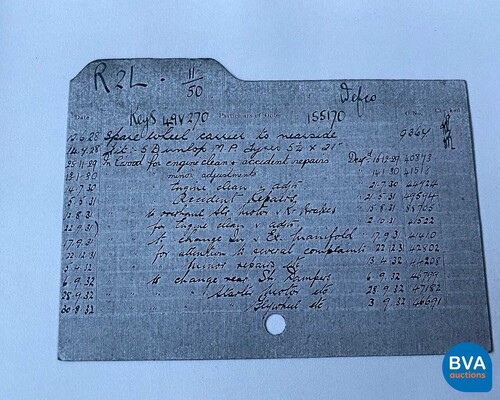 R2L. 11/50
Keys 49V270 Particulars of 155170 Defco
Date
12.6.28 Spare wheel carrier to nearside 9364
14.4.28 5 Dunlop M.P. Tyres 5¼ x 21"
25.11.29 In for engine clean & accident repairs Desp'd 16.12.29 40873
13.1.30 minor adjustments 14.1.30 41518
14.7.30 " Engine clean & adjt. 2.7.30 44924
5.5.31 " Accident Repairs 2.5.31 49594
12.8.31 " to overhaul Stg motor & Rr Brakes 15.8.31
22.9.31 " for Engine Clean & adjt. 2.10.31 41522
17.9.31 " to change In. & Ex. manifold 17.9.31
22.12.31 " for attention to several complaints 22.12.31 42802
5.4.32 " Junior repairs 13.4.32 44208
6.9.32 " to change rear St. Dampers 6.9.32 46799
28.9.32 " " Starter motor etc 28.9.32 47182
30.8.32 " " Flywheel etc. 3.9.32 46691
BVA
auctions